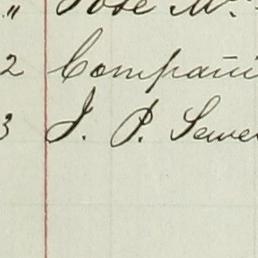 " Jose M.
2 Compañi
3 J. P. Sewe